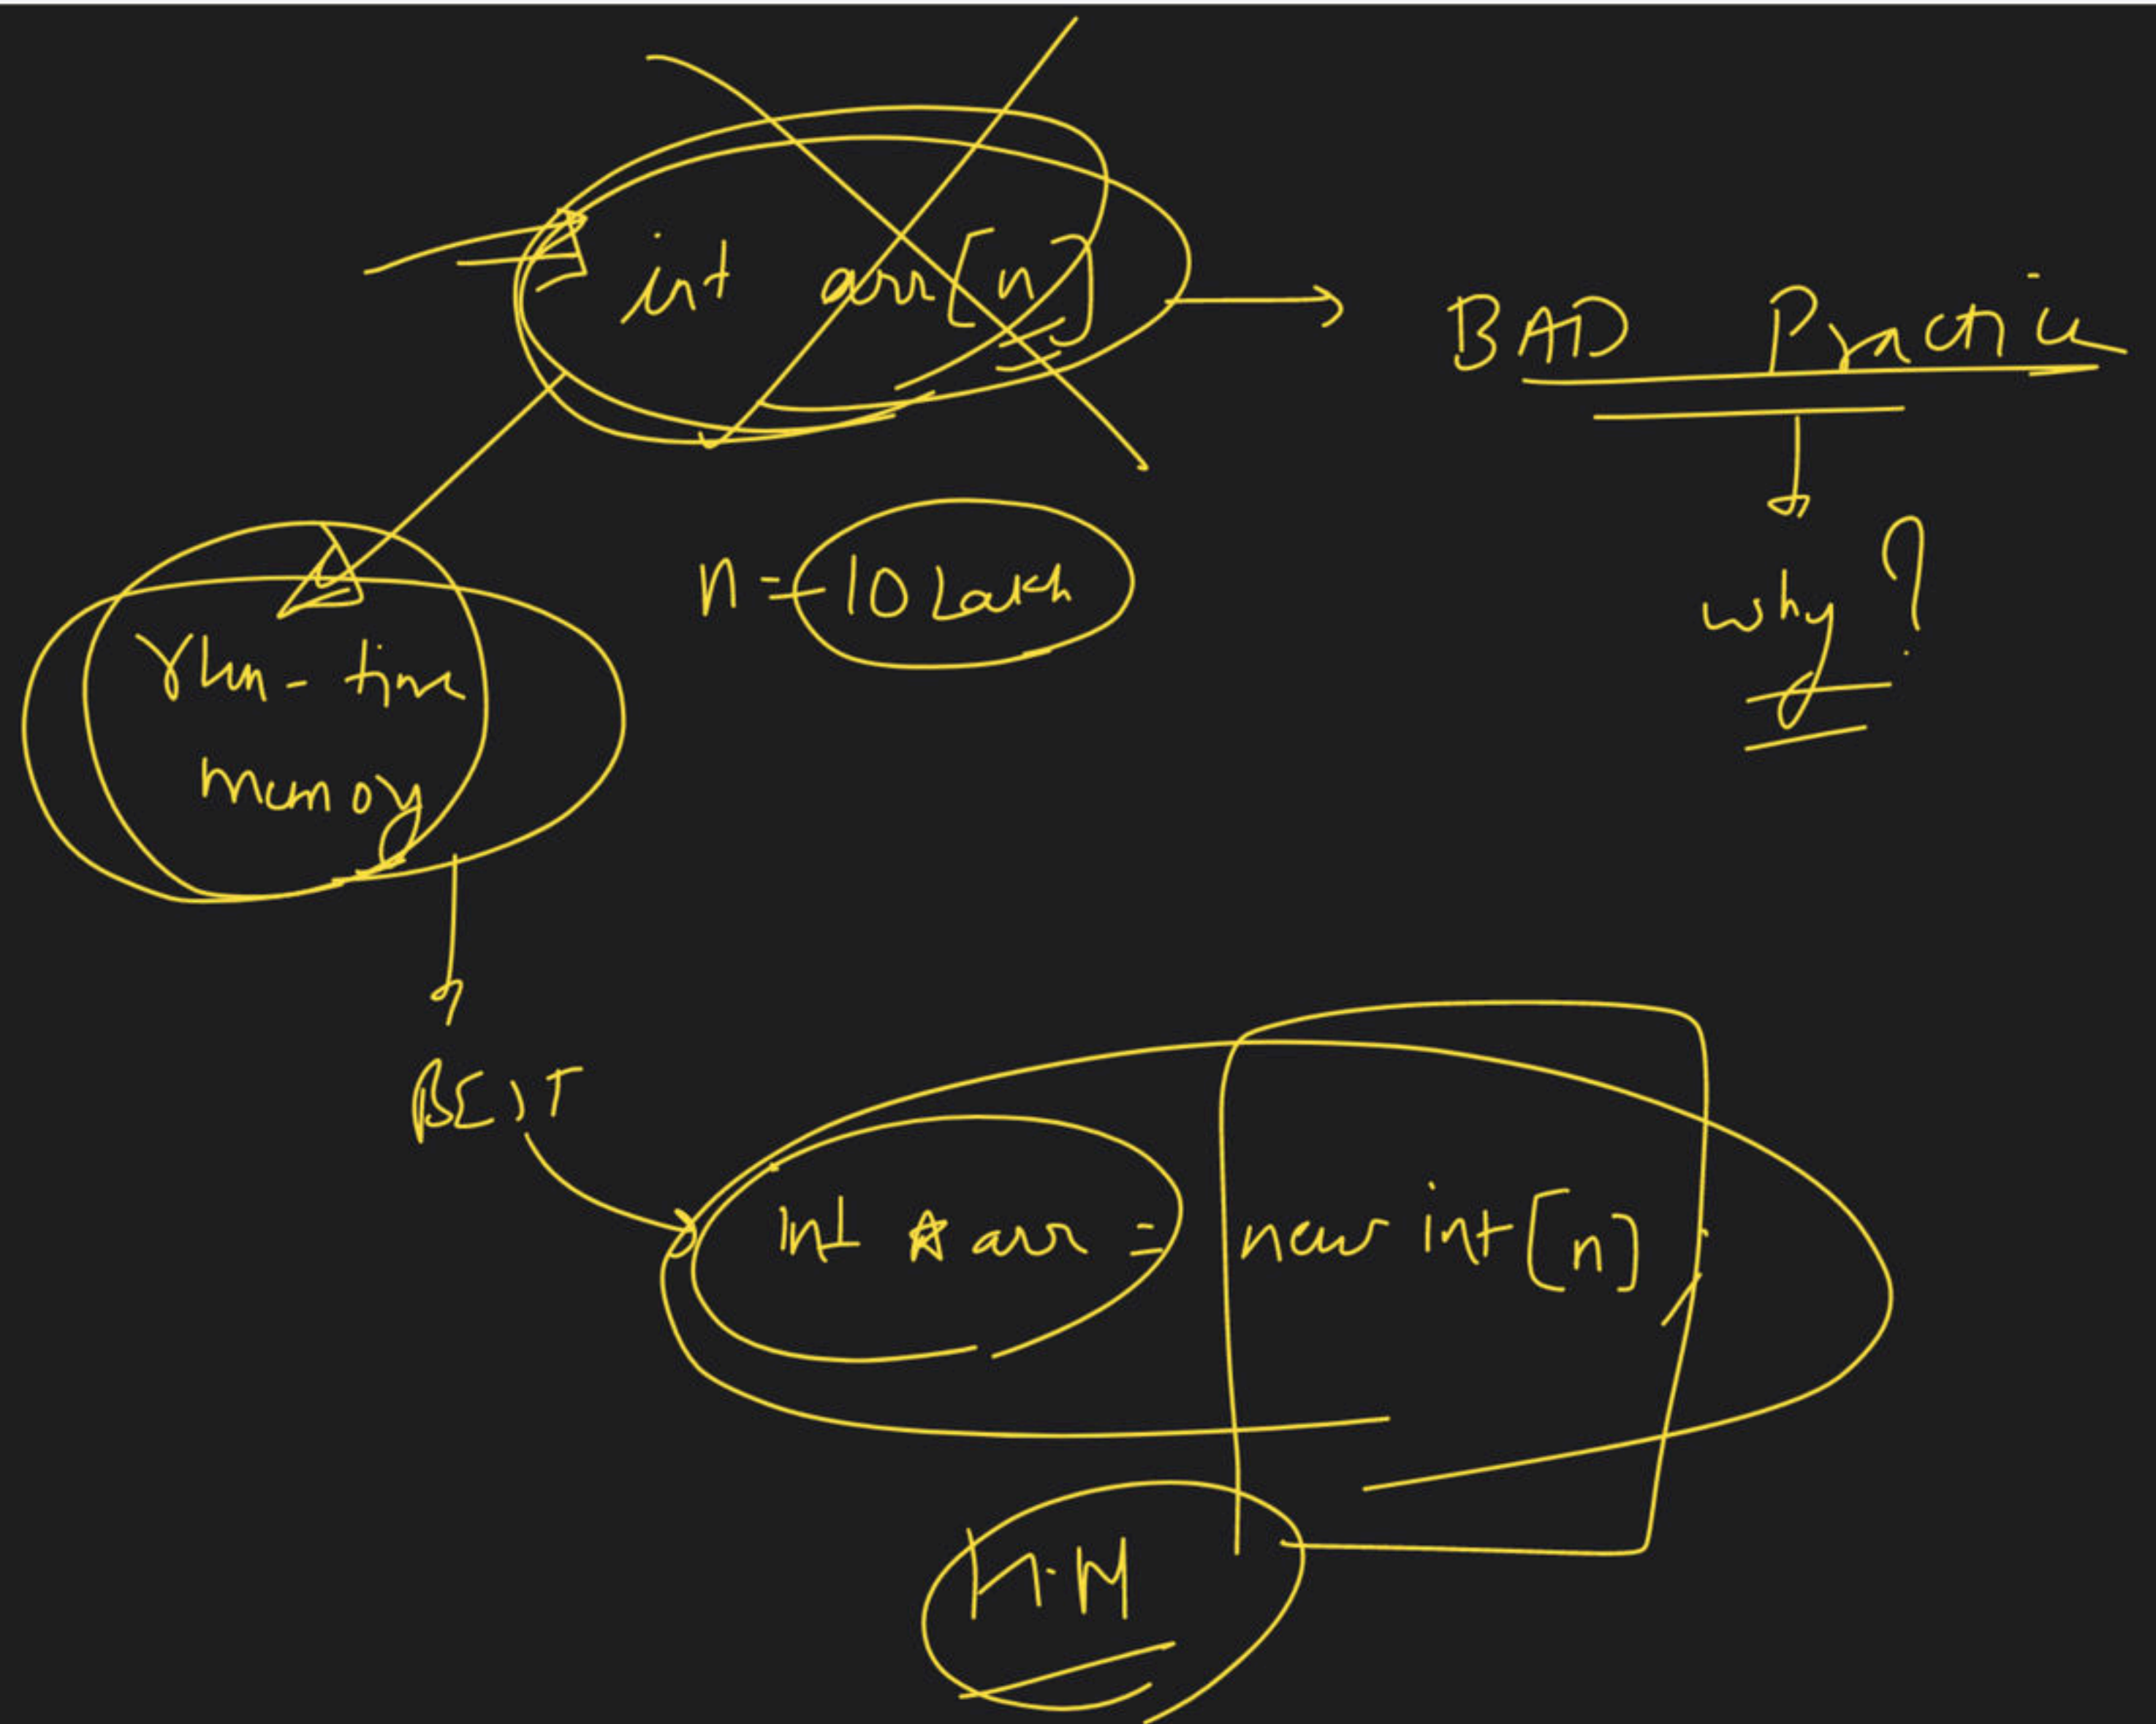 int arr[n]
BAD Practice
why?
n = 10 Lakh
run-time
memory
BEST
int *arr = new int[n];
H.M